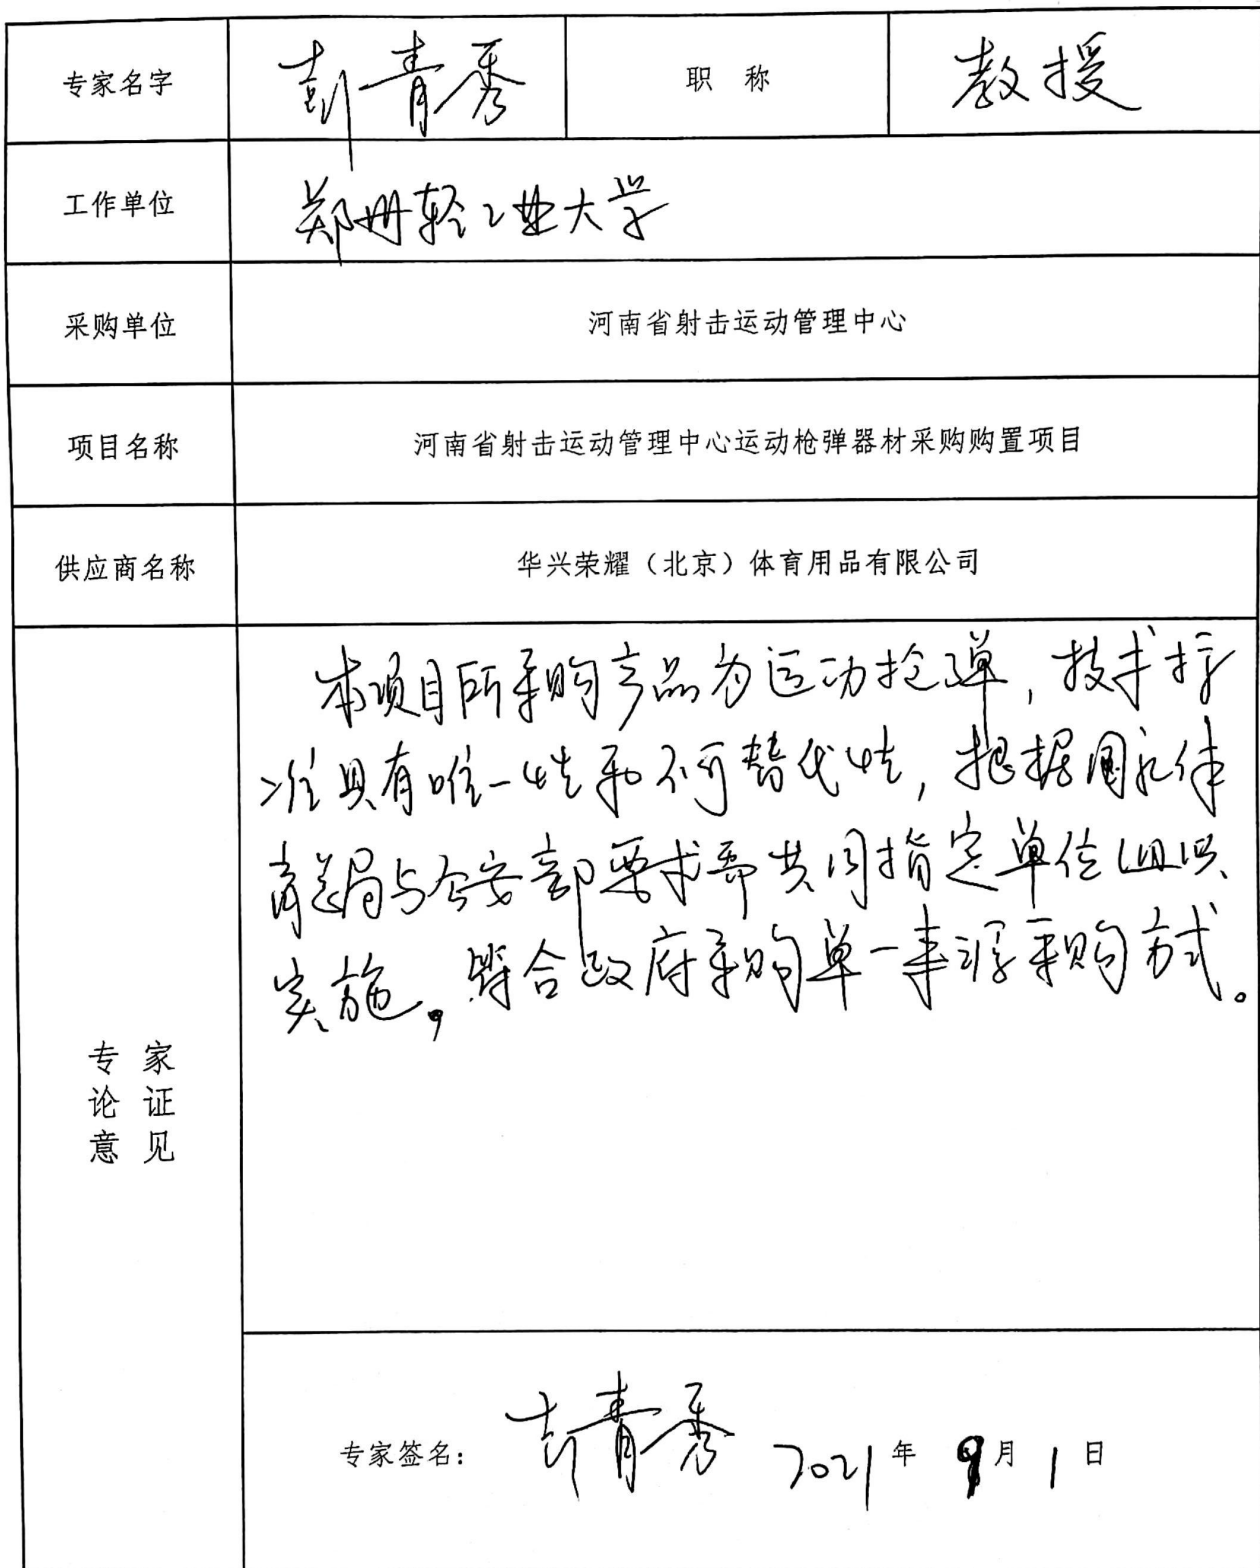 专家名字 彭青秀 职称 教授
工作单位 郑州轻工业大学
采购单位 河南省射击运动管理中心
项目名称 河南省射击运动管理中心运动枪弹器材采购购置项目
供应商名称 华兴荣耀（北京）体育用品有限公司
专家
论证
意见
本项目所采购产品为运动枪弹,技术标
准具有唯一性和不可替代性,根据国家体
育总局与公安部要求需共同指定单位组织
实施。符合政府采购单一来源采购方式。
专家签名: 彭青秀 2021年9月1日